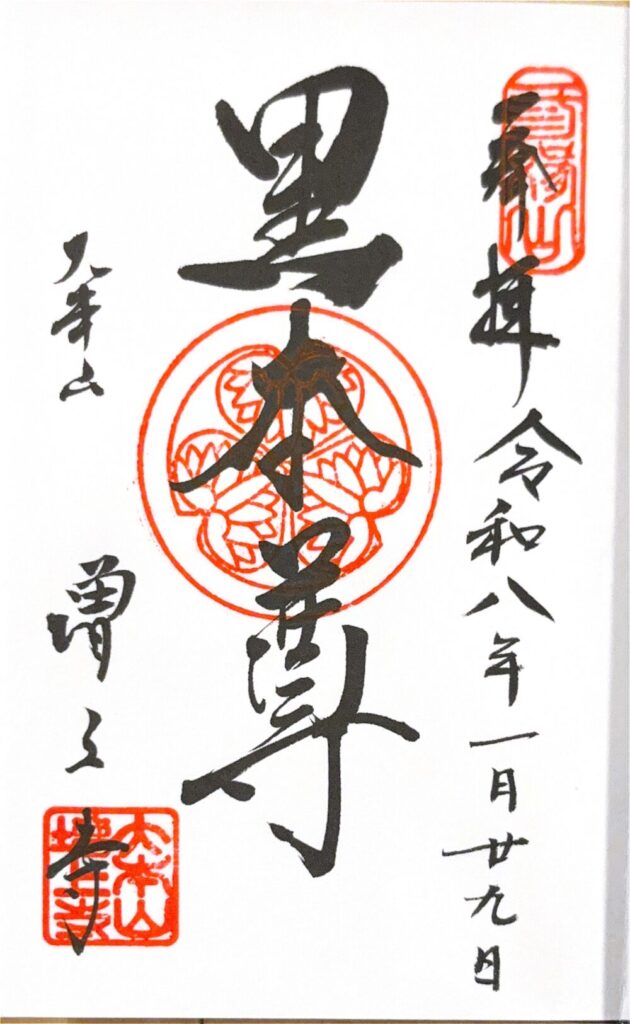 奉拝 令和八年一月廿九日
黒本尊
大本山 増上寺
大本山増上寺